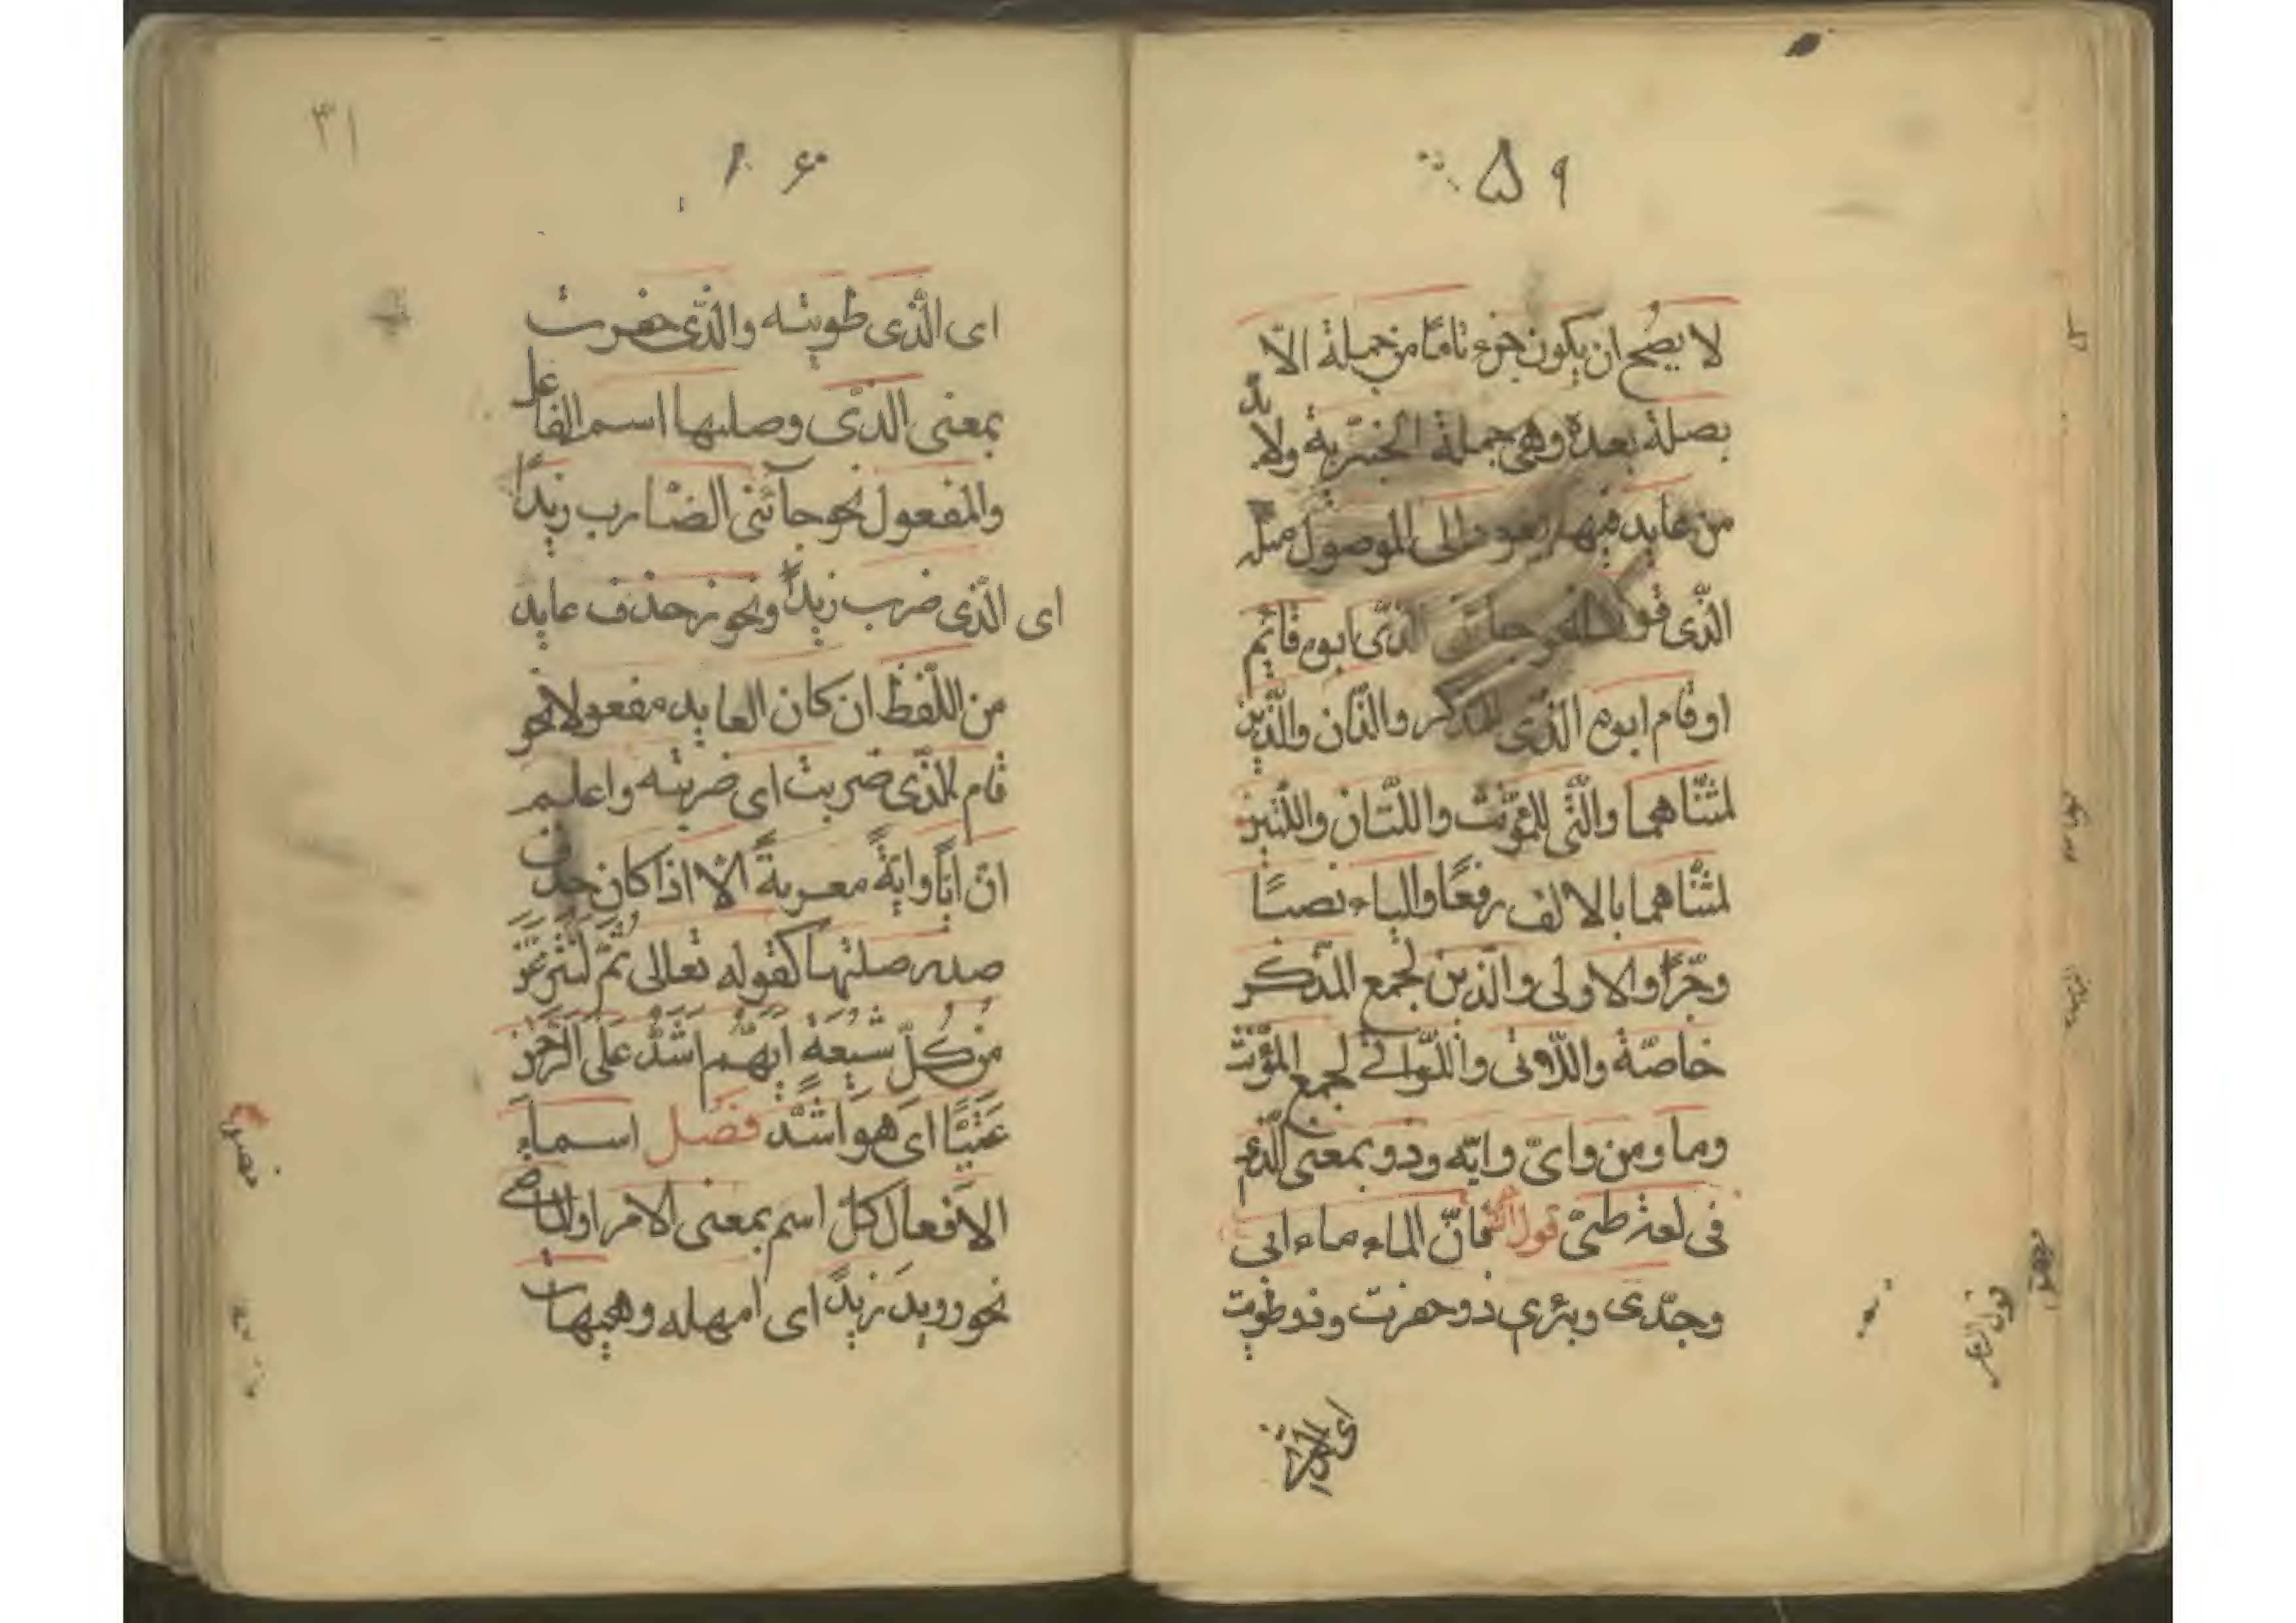 ۵۹
لا يصُح ان يكون جزء تامّا من جملة الّا
بصلة بعده وهى جملة الخبريّة ولا بدّ
من عايد فيها يعود الى الموصول مثله
الّذى قولنا جائنى الّذى ابوه قائم
او قام ابوه الّذى للمذكر والذّان والّذين
لمثنّاهما والّتى للمؤنّث واللّتان واللّتين
لمثنّاهما بالالف رفعًا والياء نصبًا
وجرًّا والاولى والّذين لجمع المذكر
خاصّة واللّاتى واللّواتى لجمع المؤنّث
وما ومن واىّ وايّه وذو بمعنى الّذى
فى لغة طىّ قول الشاعر فانّ الماء ماء ابى
وجدّى وبئرى ذو حفرت وذو طويت
اى الّذى
۶۰
۳۱
اى الّذى طويته والّذى حفرت
بمعنى الّذى وصلتها اسم الفاعل
والمفعول نحو جآئنى الضّارب زيدًا
اى الّذى ضرب زيدًا ونحو زحذف عايد
من اللّفظ ان كان العايد مفعولا نحو
قام الّذى ضربت اى ضربته واعلم
انّ ايًّا وايّةً معربةً الّا اذا كان حذف
صدر صلتها كقوله تعالى ثُمَّ لَنَنْزِعَنَّ
مِنْ كُلِّ شِيعَةٍ اَيُّهُم اَشَدُّ عَلَى الرَّحْمٰنِ
عِتِيًّا اى هو اشدّ فصل اسماء
الافعال كلّ اسم بمعنى الامر او الماضى
نحو رويدَ زيدًا اى امهله وهيهات